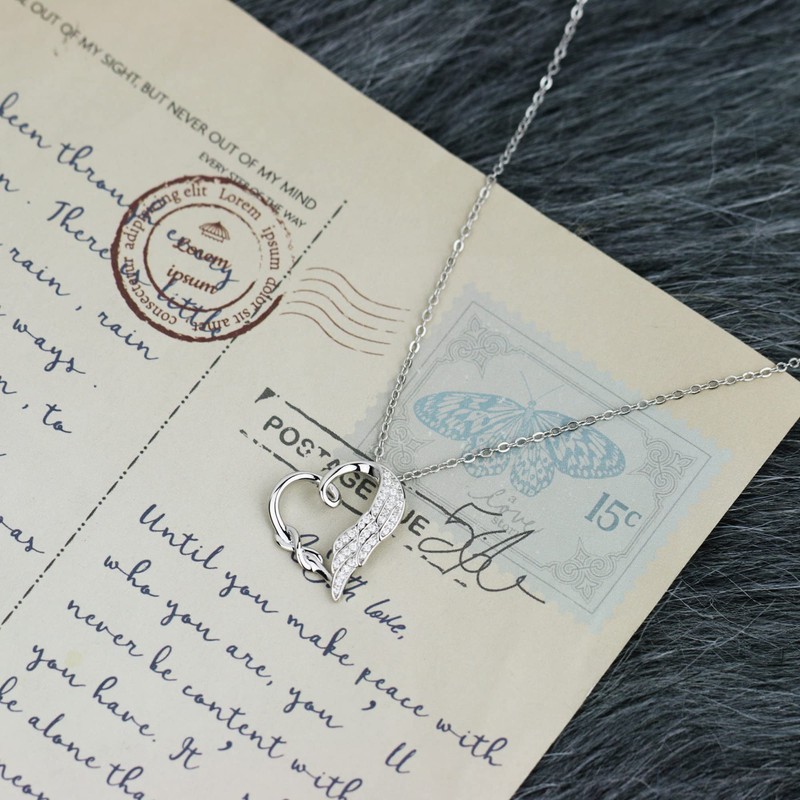 OUT OF MY SIGHT, BUT NEVER OUT OF MY MIND
EVERY STEP OF THE WAY
adipiscing elit Lorem ipsum dolor sit amet consectetur
Lorem
ipsum
been through every
There is little
rain, rain
ways.
, to
was
POSTAGE DUE
15c
a love story
with love,
Until you make peace with
who you are, you'll
never be content with
you have. It's
be alone tha